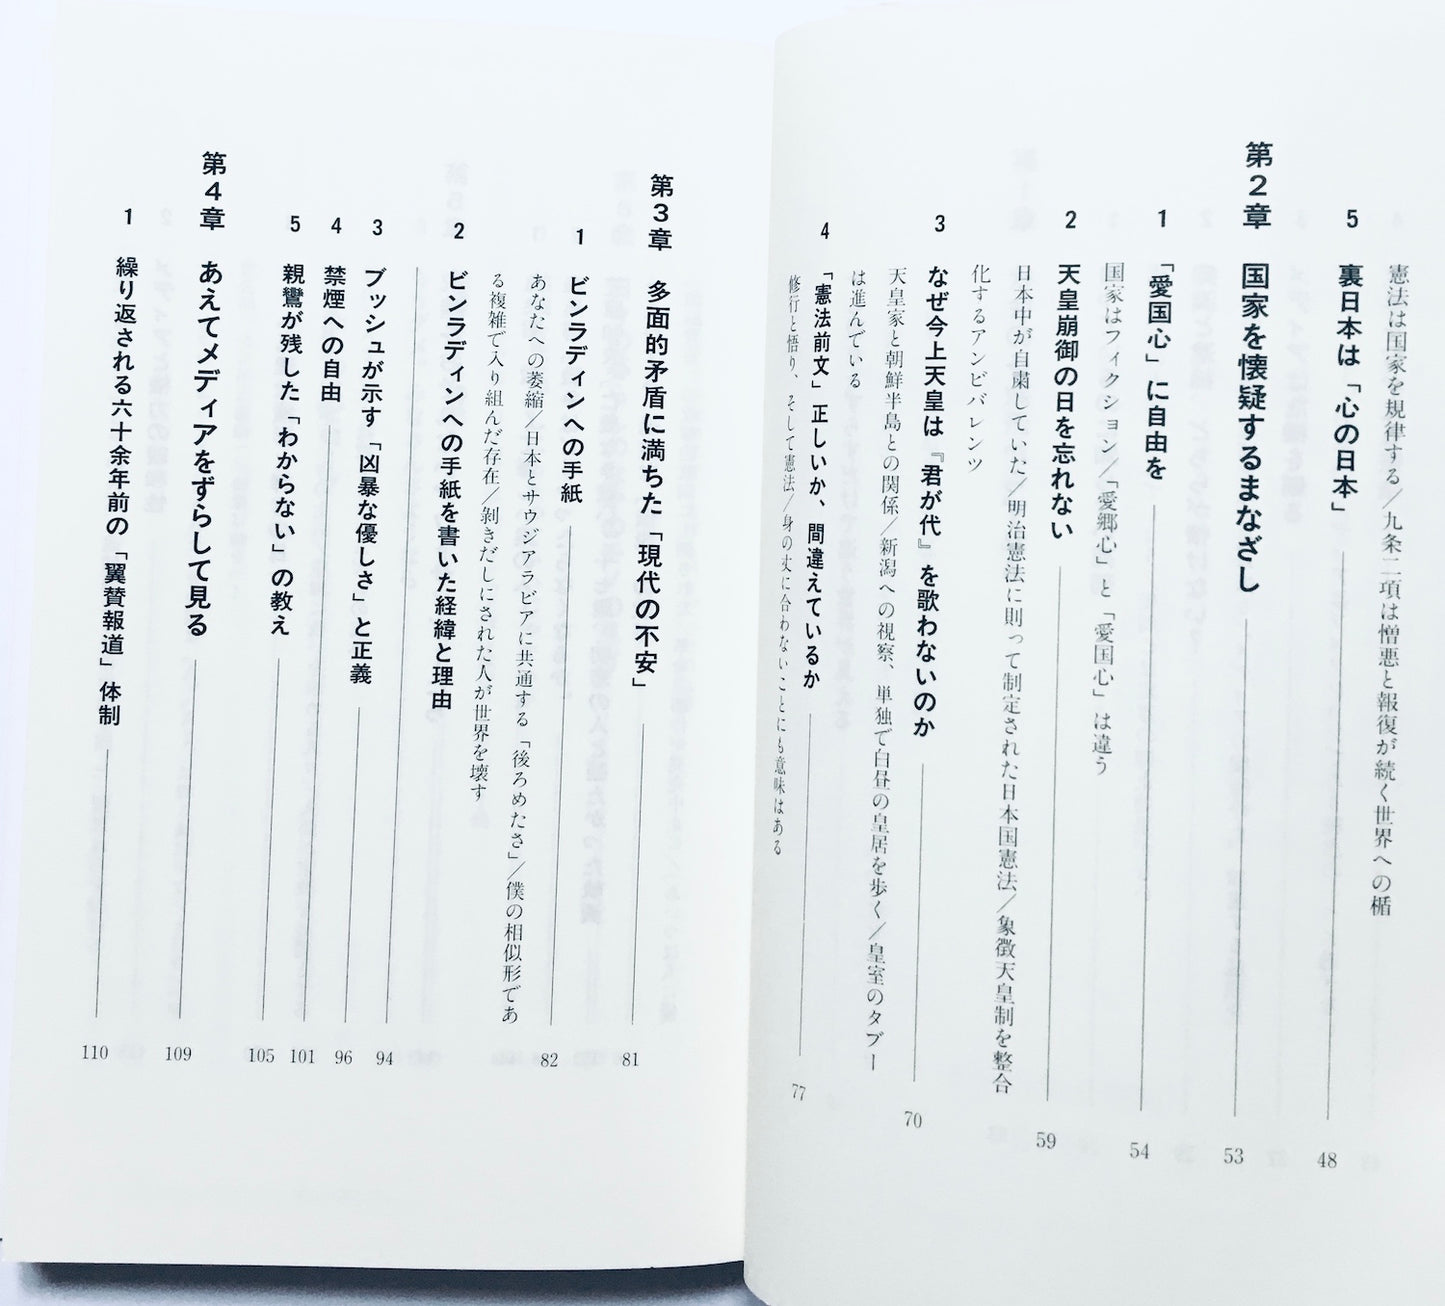 憲法は国家を規律する/九条二項は憎悪と報復が続く世界への楯
5 裏日本は「心の日本」 48
第2章 国家を懐疑するまなざし 53
1 「愛国心」に自由を 54
国家はフィクション/「愛郷心」と「愛国心」は違う
2 天皇崩御の日を忘れない 59
日本中が自粛していた/明治憲法に則って制定された日本国憲法/象徴天皇制を整合
化するアンビバレンツ
3 なぜ今上天皇は『君が代』を歌わないのか 70
天皇家と朝鮮半島との関係/新潟への視察、単独で白昼の皇居を歩く/皇室のタブー
は進んでいる
4 「憲法前文」正しいか、間違えているか 77
修行と悟り、そして憲法/身の丈に合わないことにも意味はある
第3章 多面的矛盾に満ちた「現代の不安」 81
1 ビンラディンへの手紙 82
あなたへの萎縮/日本とサウジアラビアに共通する「後ろめたさ」/僕の相似形であ
る複雑で入り組んだ存在/剝きだしにされた人が世界を壊す
2 ビンラディンへの手紙を書いた経緯と理由 94
3 ブッシュが示す「凶暴な優しさ」と正義 96
4 禁煙への自由 101
5 親鸞が残した「わからない」の教え 105
第4章 あえてメディアをずらして見る 109
1 繰り返される六十余年前の「翼賛報道」体制 110